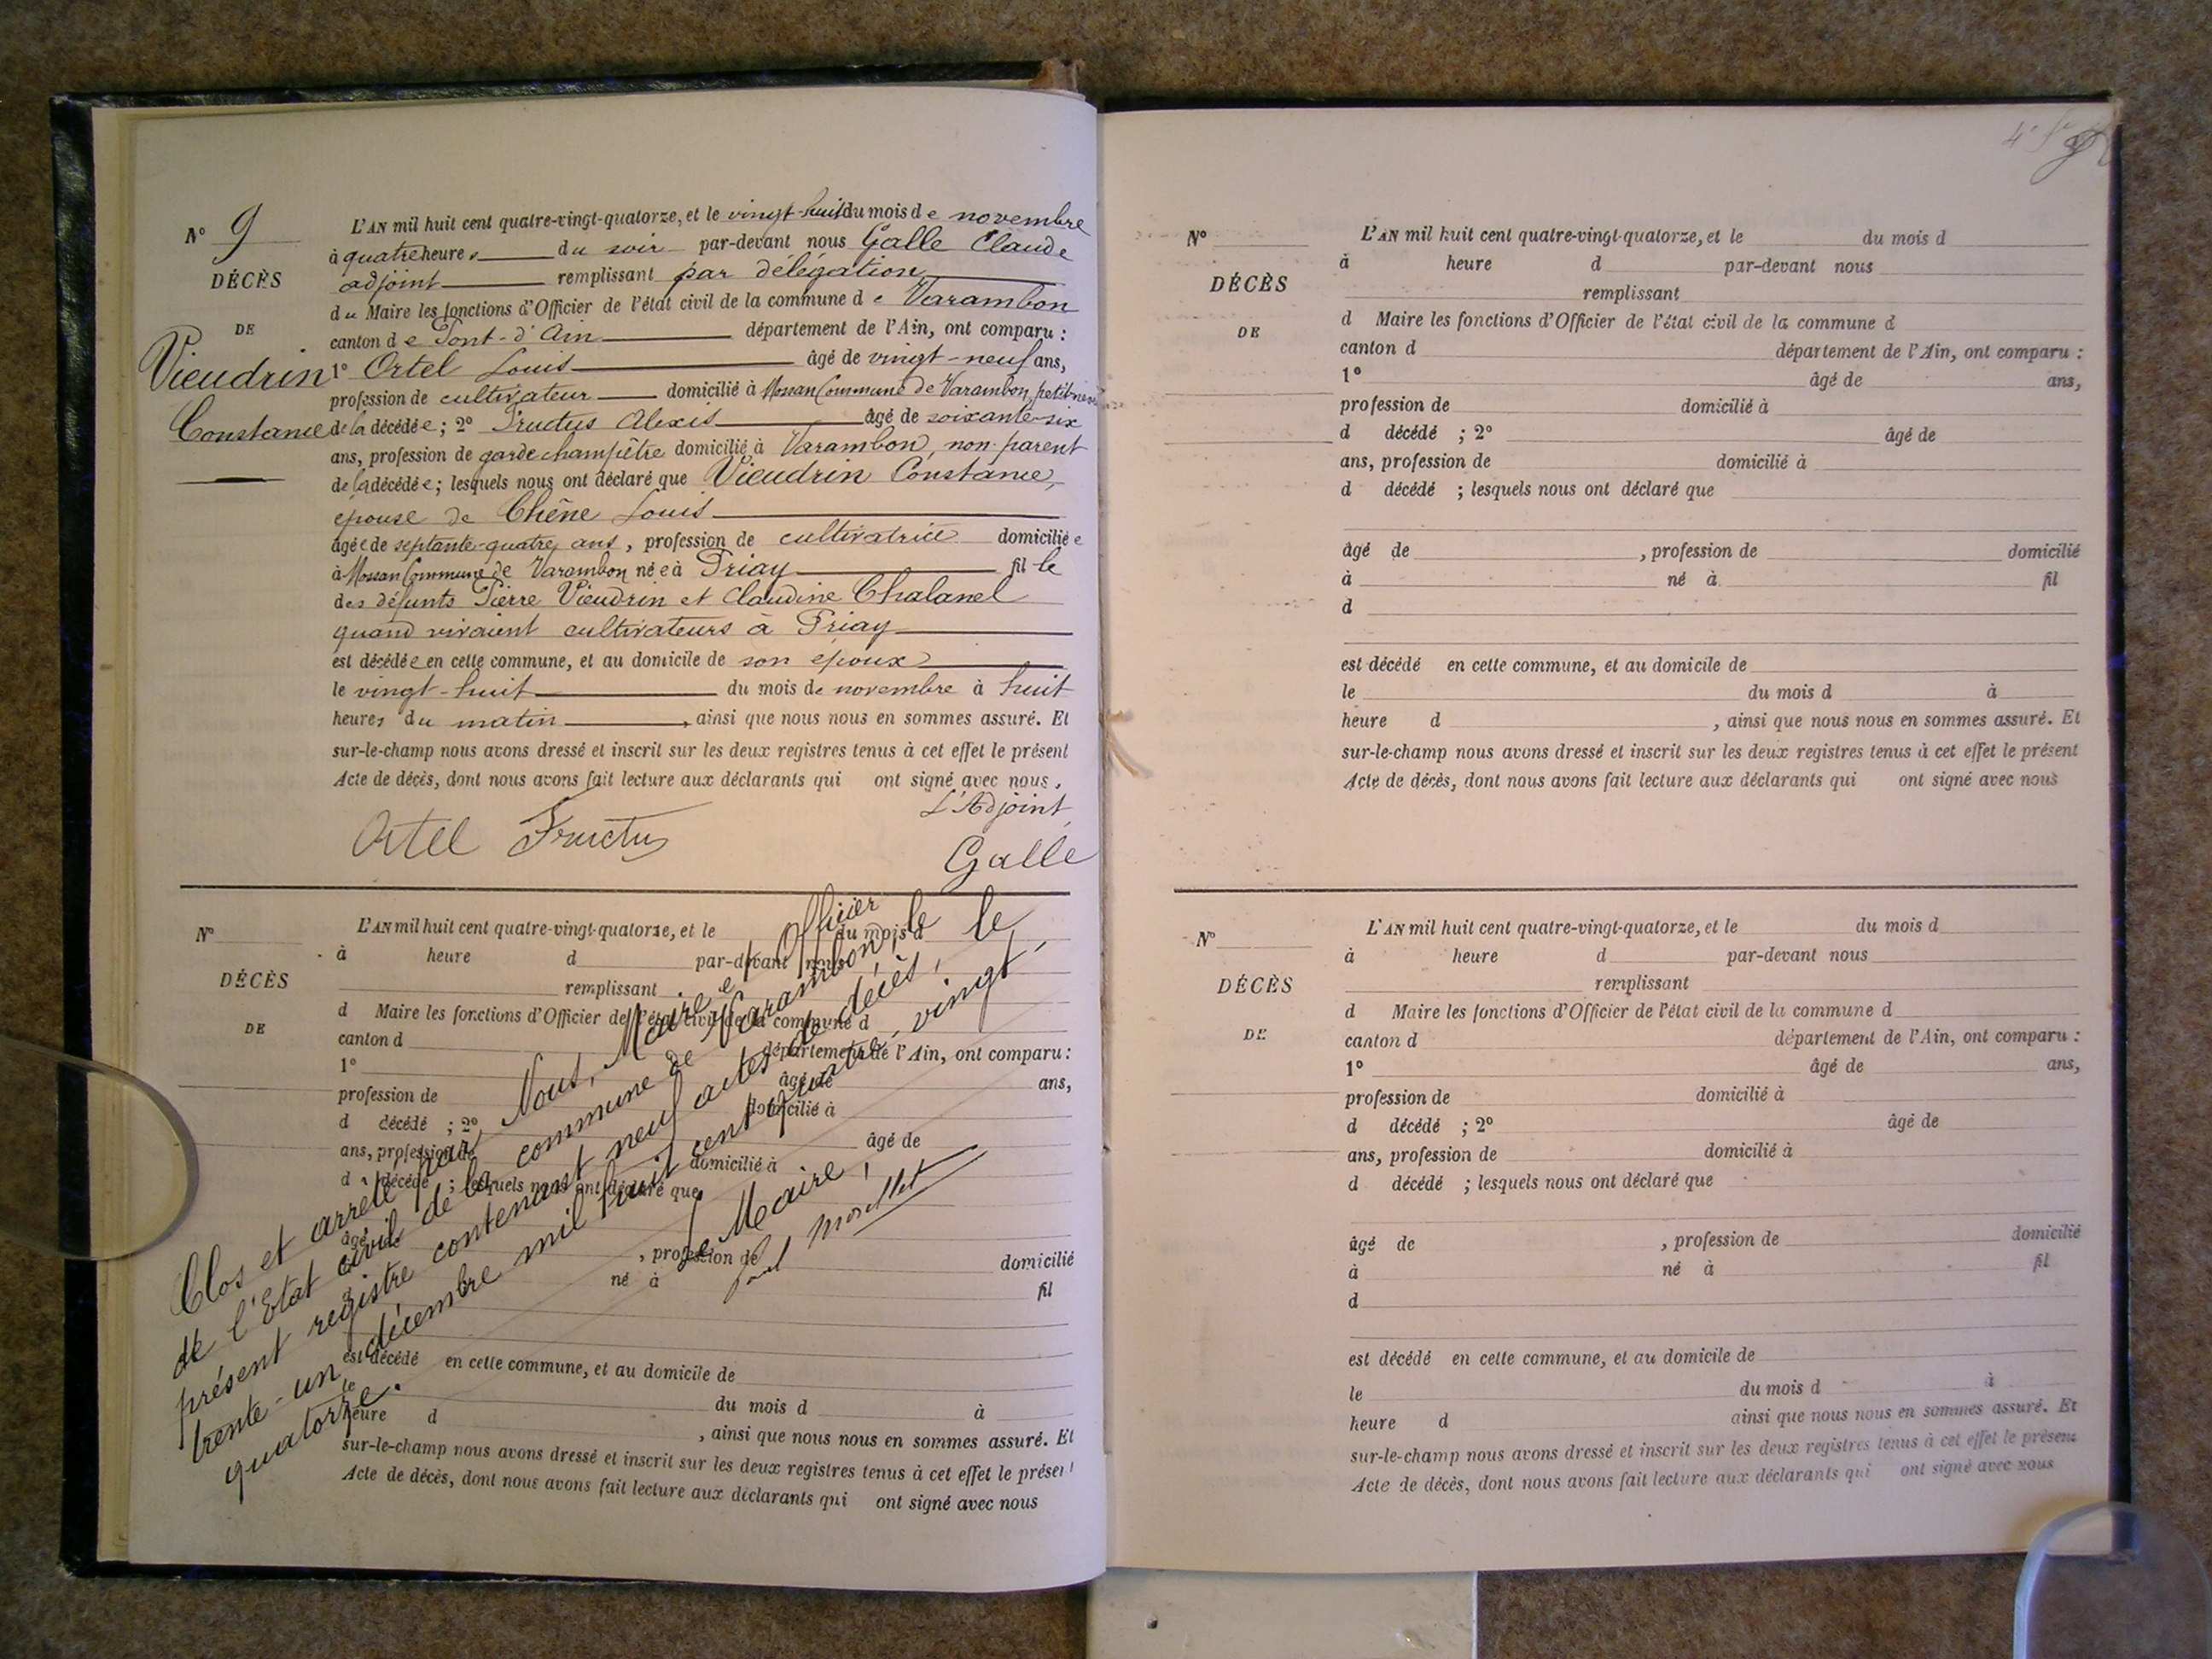 N° 9
DÉCÈS
DE
Vieudrin
Constance
L'AN mil huit cent quatre-vingt-quatorze, et le vingt-huit du mois de novembre
à quatre heures du soir par-devant nous Galle Claude
adjoint remplissant par délégation
du Maire les fonctions d'Officier de l'état civil de la commune de Varambon
canton de Pont-d'Ain département de l'Ain, ont comparu :
1° Ortel Louis âgé de vingt-neuf ans,
profession de cultivateur domicilié à Mossan Commune de Varambon, petit neveu
de la décédée ; 2° Fructus Alexis âgé de soixante-six
ans, profession de garde champêtre domicilié à Varambon, non parent
de la décédée ; lesquels nous ont déclaré que Vieudrin Constance,
épouse de Chêne Louis
âgée de septante-quatre ans, profession de cultivatrice domiciliée
à Mossan Commune de Varambon née à Priay fille
des défunts Pierre Vieudrin et Claudine Chalanel
quand vivaient cultivateurs à Priay
est décédée en cette commune, et au domicile de son époux
le vingt-huit du mois de novembre à huit
heures du matin, ainsi que nous nous en sommes assuré. Et
sur-le-champ nous avons dressé et inscrit sur les deux registres tenus à cet effet le présent
Acte de décès, dont nous avons fait lecture aux déclarants qui ont signé avec nous.
L'Adjoint,
Ortel Fructus Galle
N°
DÉCÈS
DE
L'AN mil huit cent quatre-vingt-quatorze, et le du mois d
à heure d par-devant nous
remplissant
d Maire les fonctions d'Officier de l'état civil de la commune d
canton d département de l'Ain, ont comparu :
1° âgé de ans,
profession de domicilié à
d décédé ; 2° âgé de
ans, profession de domicilié à
d décédé ; lesquels nous ont déclaré que
âgé de , profession de domicilié
né à fil
est décédé en cette commune, et au domicile de
le du mois d à
heure d , ainsi que nous nous en sommes assuré. Et
sur-le-champ nous avons dressé et inscrit sur les deux registres tenus à cet effet le présent
Acte de décès, dont nous avons fait lecture aux déclarants qui ont signé avec nous
Clos et arrêté par Nous, Maire et Officier
de l'Etat civil de la commune de Varambon, le
présent registre contenant neuf actes de décès, le
trente-un décembre mil huit cent quatre-vingt-
quatorze.
Le Maire,
Paul Morellet
N°
DÉCÈS
DE
L'AN mil huit cent quatre-vingt-quatorze, et le du mois d
à heure d par-devant nous
remplissant
d Maire les fonctions d'Officier de l'état civil de la commune d
canton d département de l'Ain, ont comparu :
1° âgé de ans,
profession de domicilié à
d décédé ; 2° âgé de
ans, profession de domicilié à
d décédé ; lesquels nous ont déclaré que
âgé de , profession de domicilié
à né à fil
d
est décédé en cette commune, et au domicile de
le du mois d à
heure d , ainsi que nous nous en sommes assuré. Et
sur-le-champ nous avons dressé et inscrit sur les deux registres tenus à cet effet le présent
Acte de décès, dont nous avons fait lecture aux déclarants qui ont signé avec nous
N°
DÉCÈS
DE
L'AN mil huit cent quatre-vingt-quatorze, et le du mois d
à heure d par-devant nous
remplissant
d Maire les fonctions d'Officier de l'état civil de la commune d
canton d département de l'Ain, ont comparu :
1° âgé de ans,
profession de domicilié à
d décédé ; 2° âgé de
ans, profession de domicilié à
d décédé ; lesquels nous ont déclaré que
âgé de , profession de domicilié
à né à fil
d
est décédé en cette commune, et au domicile de
le du mois d à
heure d ainsi que nous nous en sommes assuré. Et
sur-le-champ nous avons dressé et inscrit sur les deux registres tenus à cet effet le présent
Acte de décès, dont nous avons fait lecture aux déclarants qui ont signé avec nous